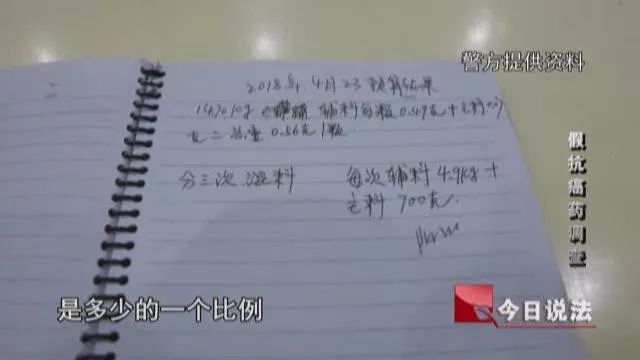 警方提供资料
2018年.4月23预算结果
14.70kg 辅料每颗0.49克+主料0.07
克=总重0.56克/颗.
分三次混料 每次辅料4.9kg+
主料700克.
假抗癌药调查
是多少的一个比例
今日说法